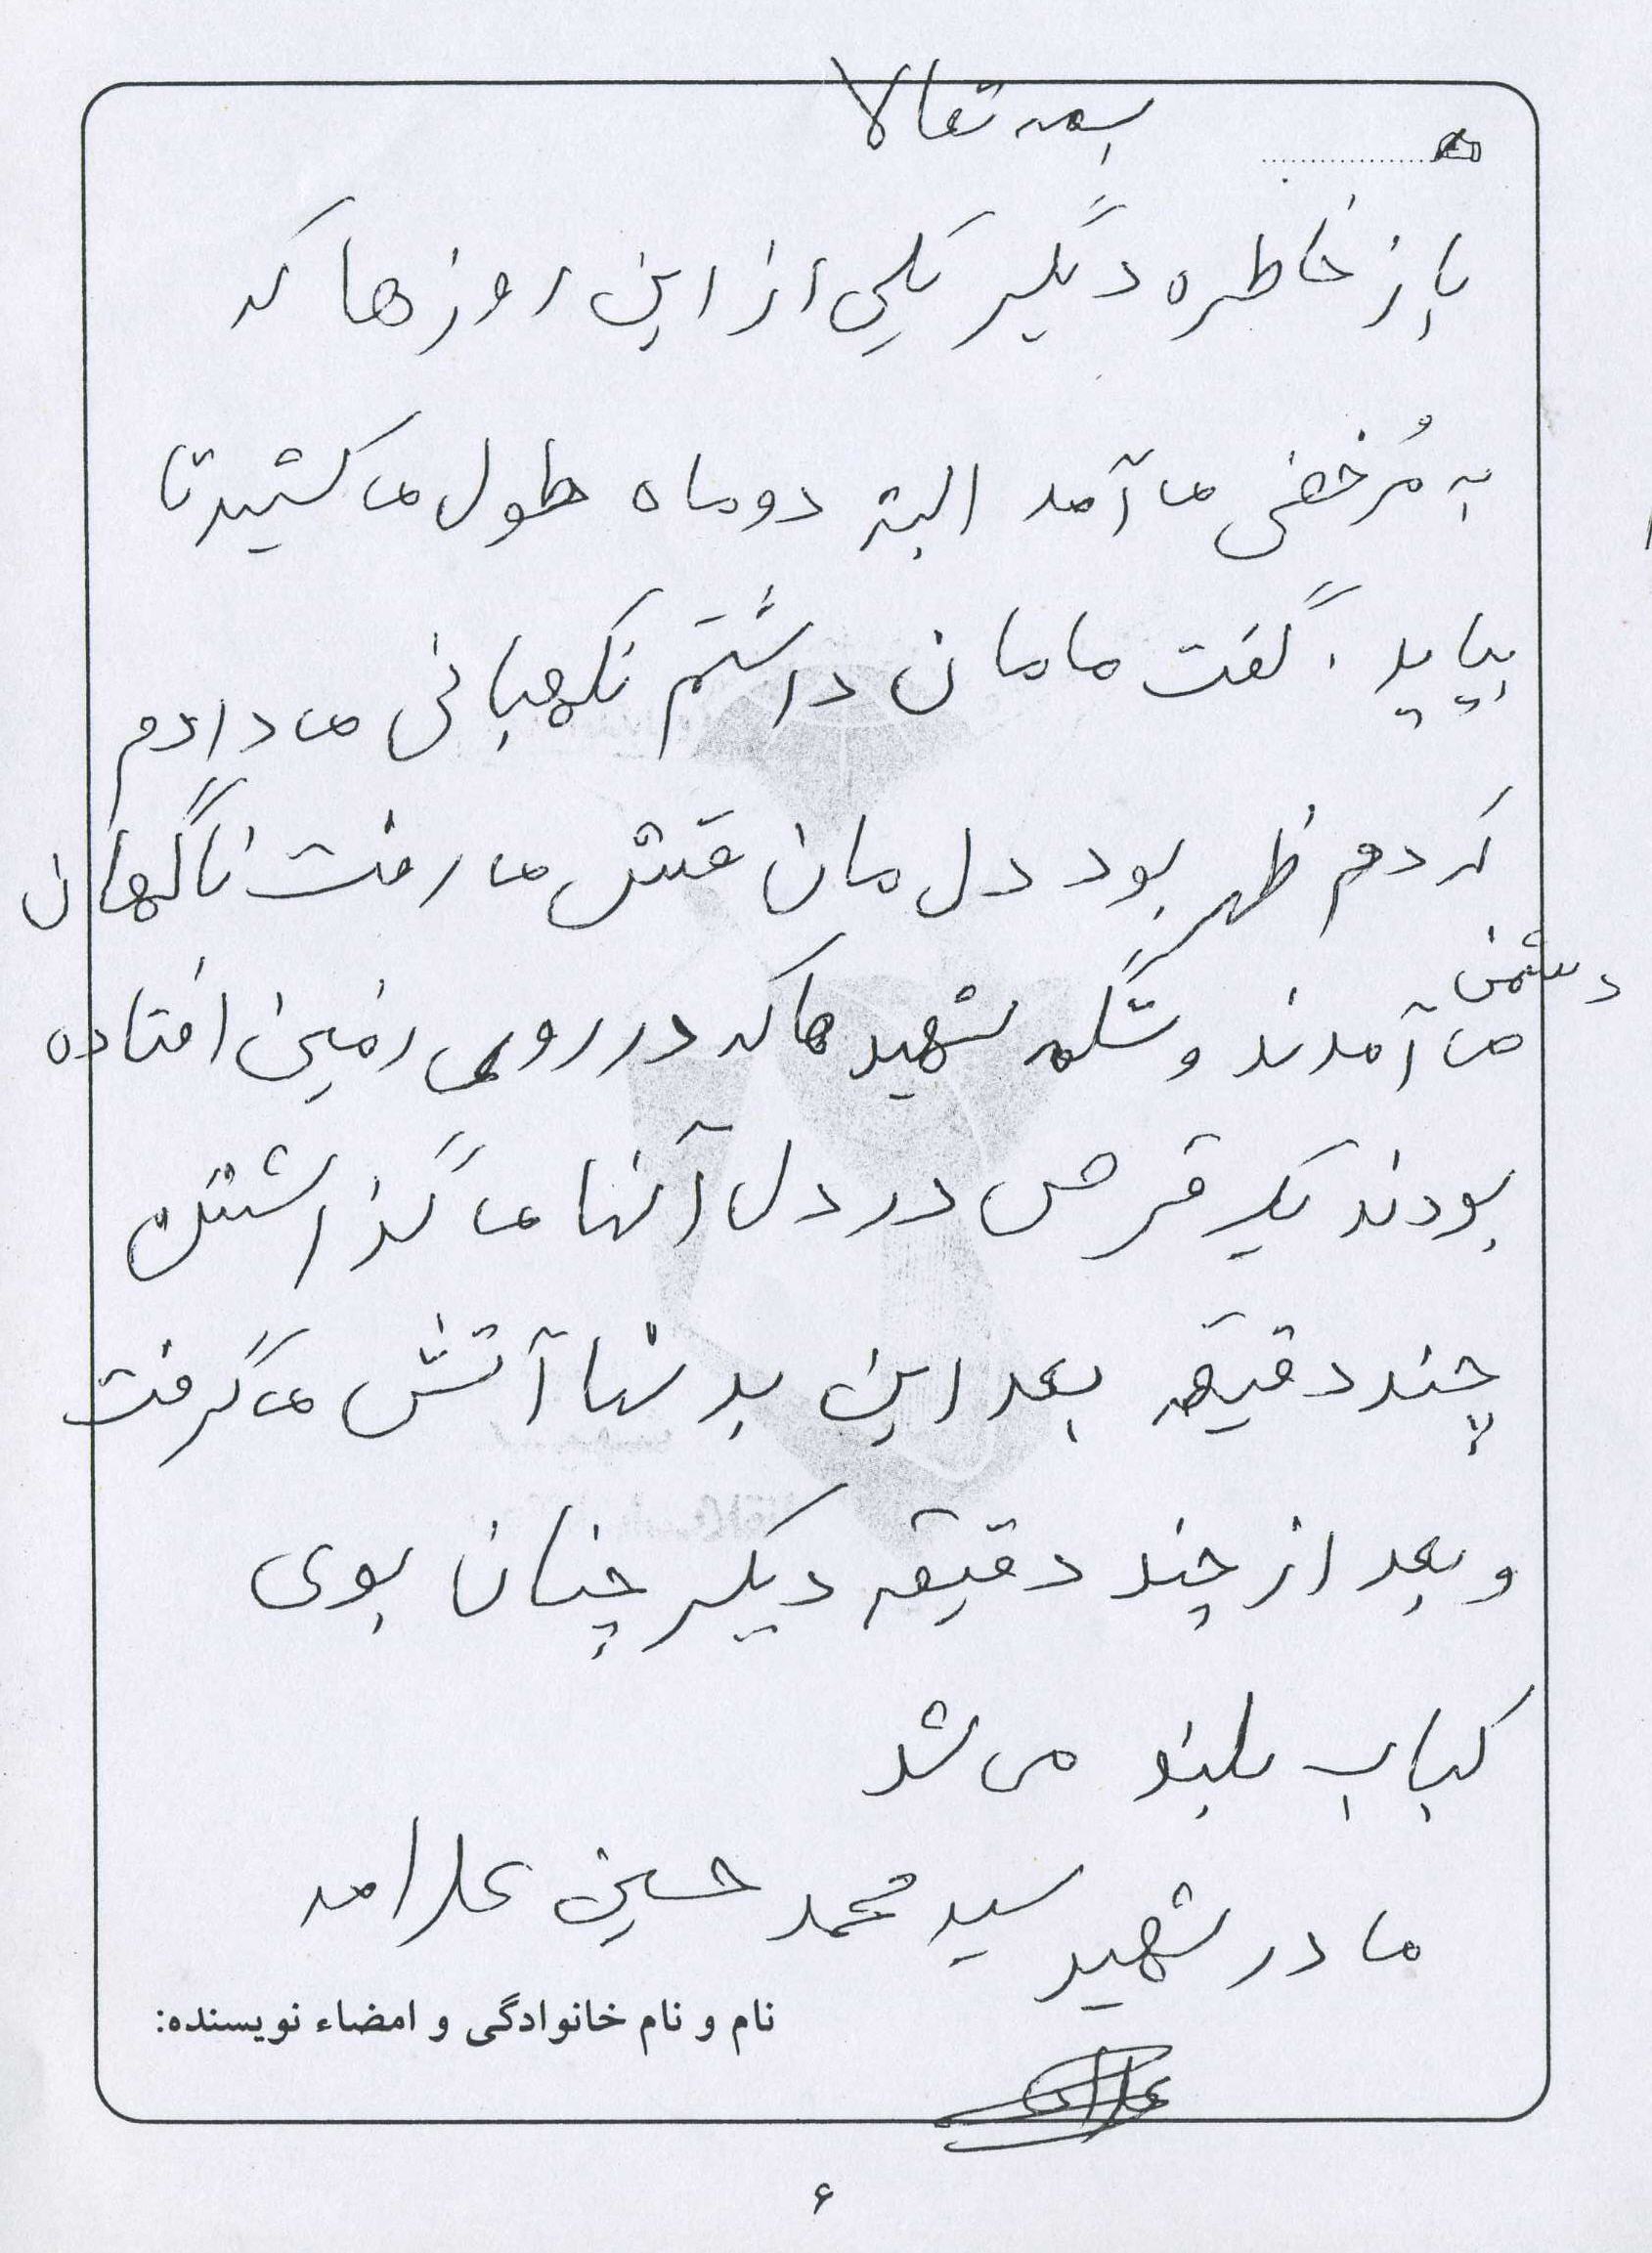 بسمه تعالا
باز خاطره دیگر یکی از این روزها که
به مُرخضی می آمد البته دو ماه طول می کشید تا
بیاید. گفت مامان داشتم نگهبانی می دادم
که دم ظهر بود دل مان قش می رفت ناگهان
دشمن
می آمدند و شکمه شهید ها که در روی زمین افتاده
بودند یک قرص در دل آنها می گذاشتن
چند دقیقه بعد این بدنها آتش می گرفت
و بعد از چند دقیقه دیگر چنان بوی
کباب بلند می شد
مادر شهید سید محمد حسین علا
نام و نام خانوادگی و امضاء نویسنده:
۶